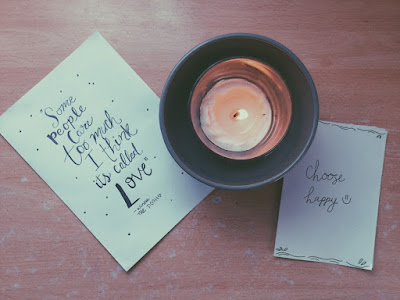 "Some
people
care
too much
I think
it's called
Love"
Choose
happy ☺